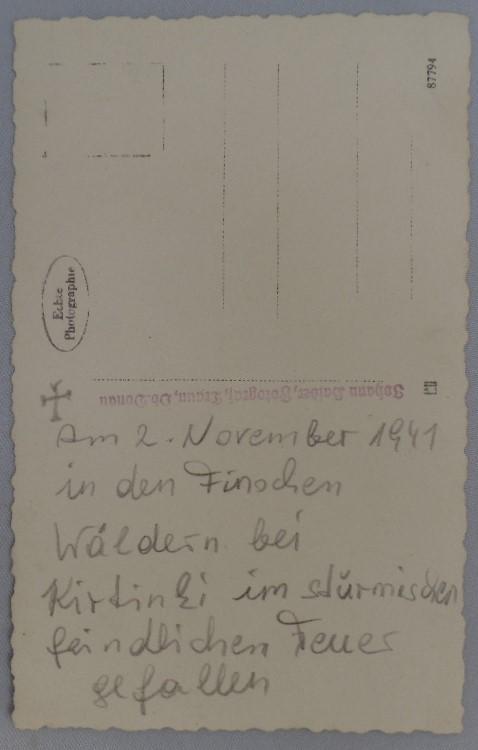 87794
Echte
Photographie
Johann Haider, Fotograf, Traun, Ob. Donau
Am 2. November 1941
in den Finschen
Wäldern bei
Kirtinki im stürmischen
feindlichen Feuer
gefallen